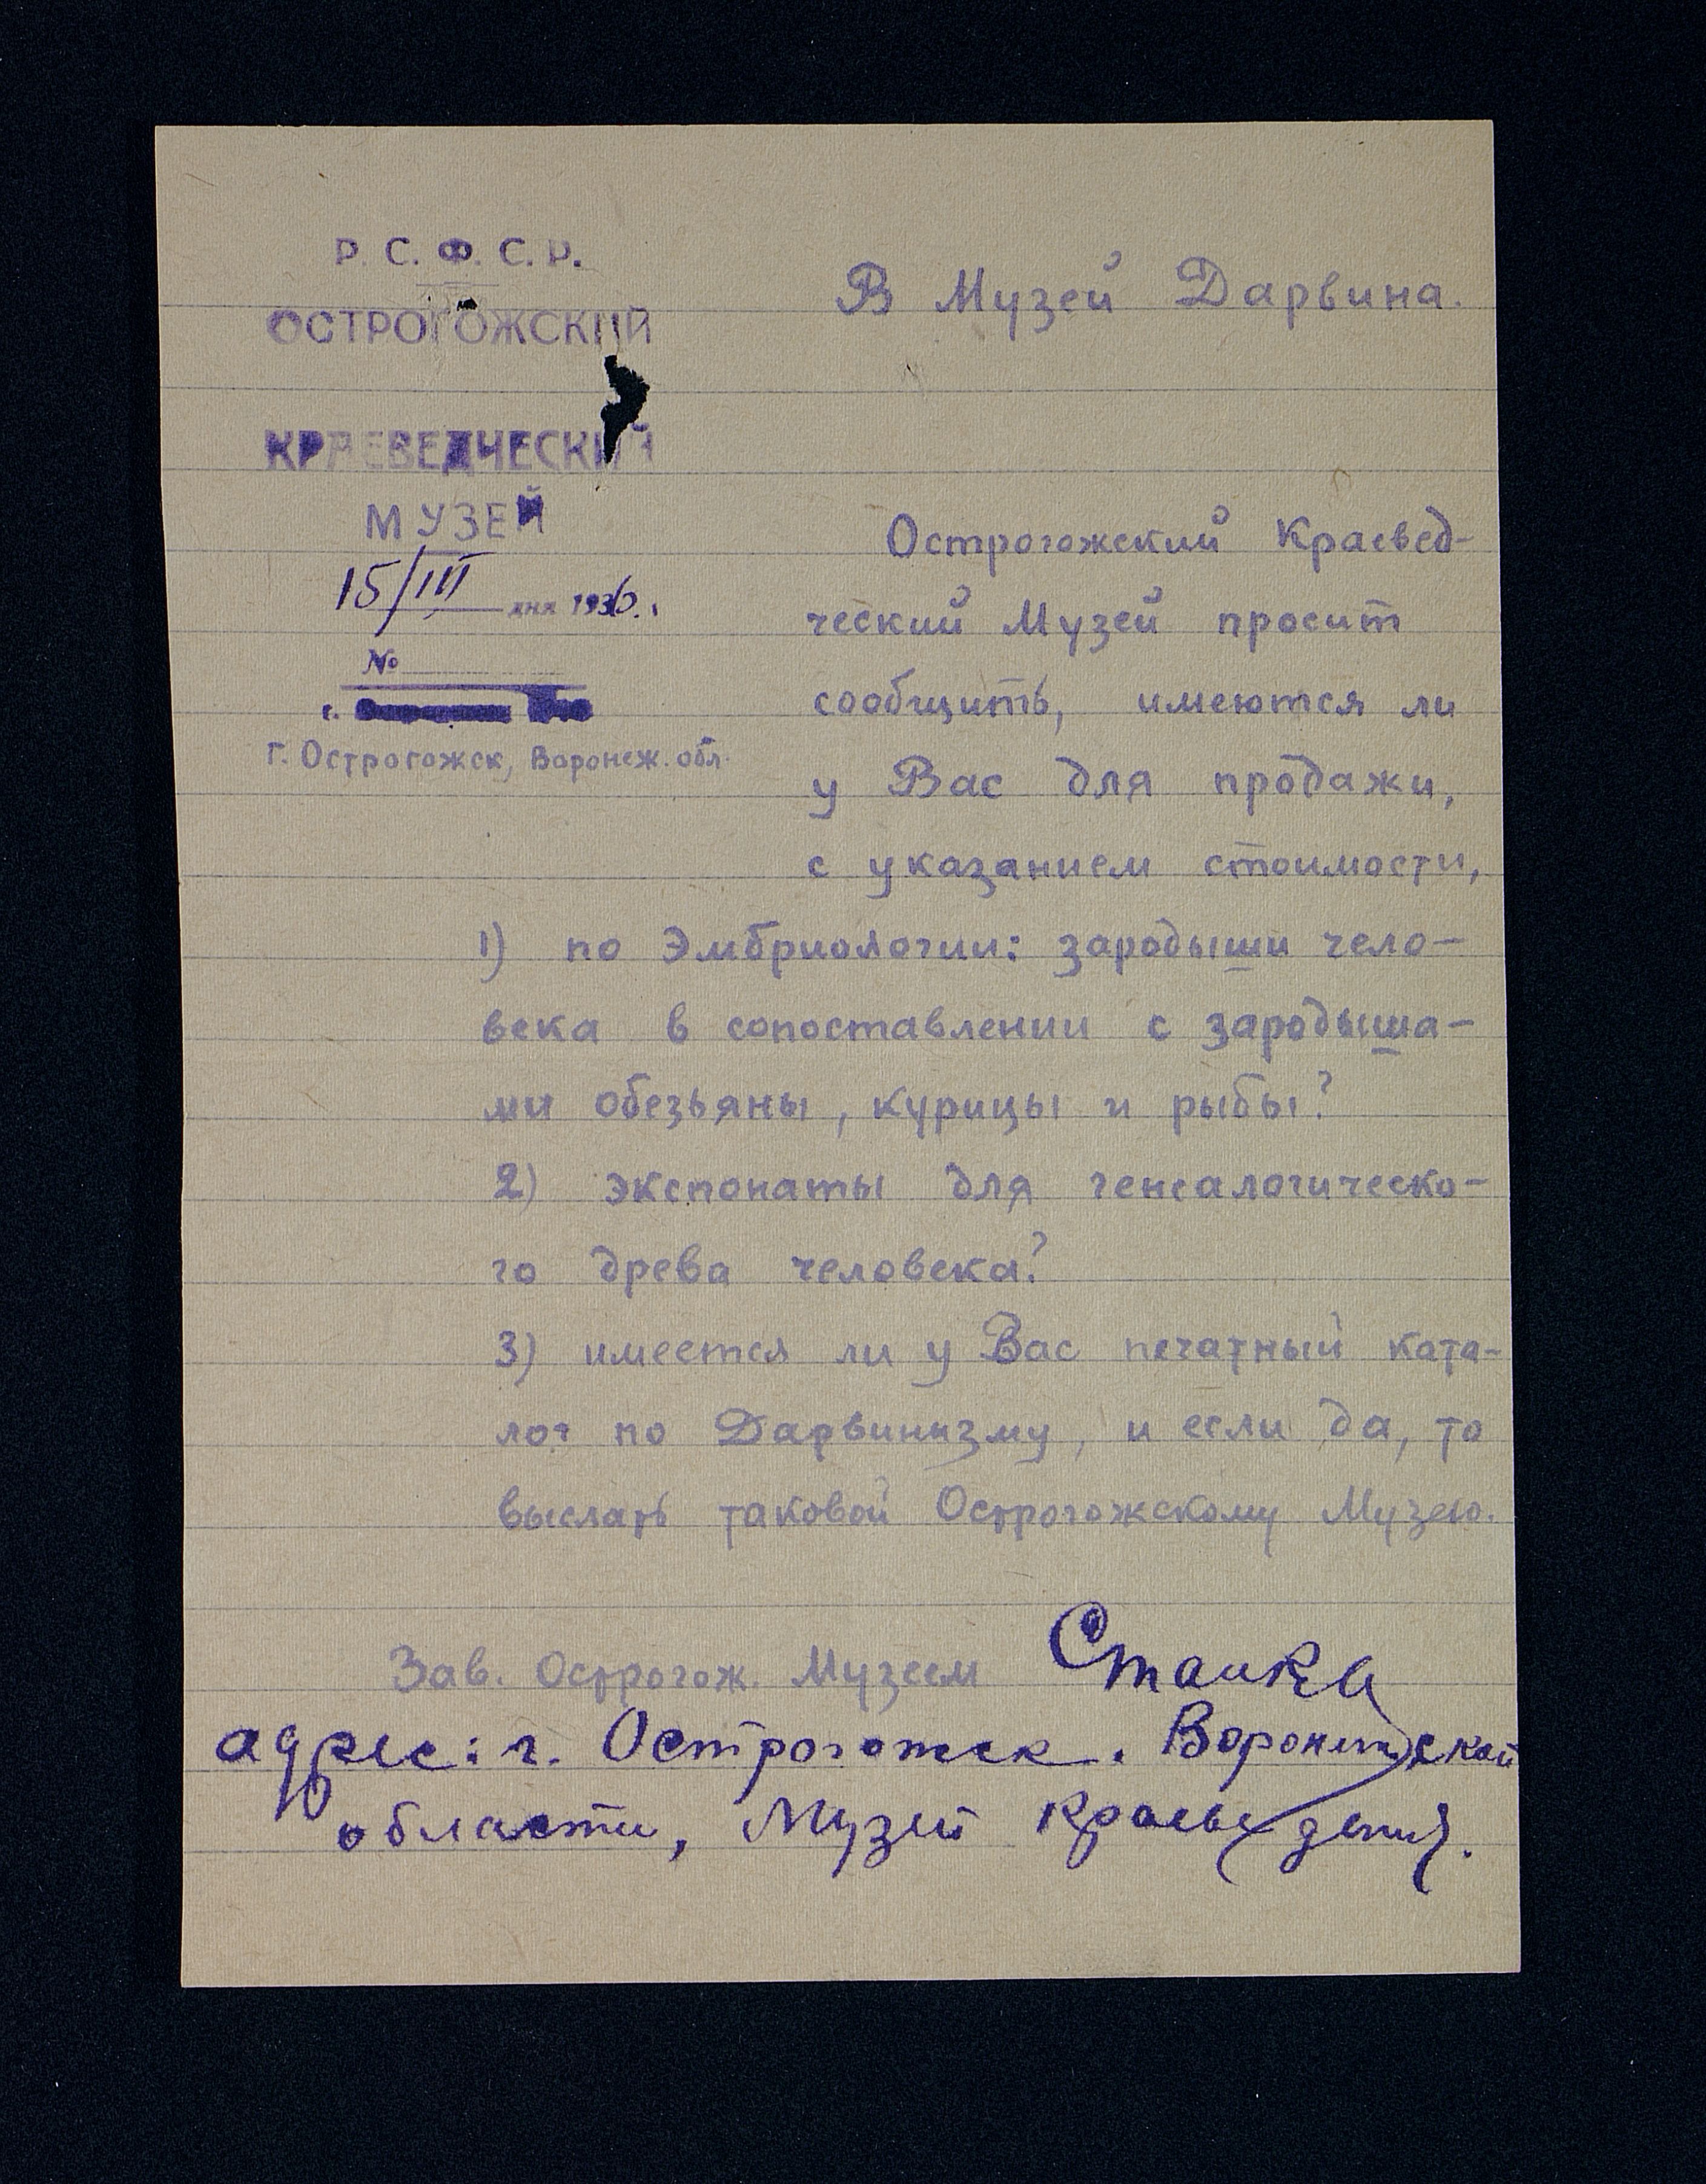 Р. С. Ф. С. Р.
ОСТРОГОЖСКИЙ
КРАЕВЕДЧЕСКИЙ
МУЗЕЙ
15/III дня 1936.
№
г.
г. Острогожск, Воронеж. обл.
В Музей Дарвина.
Острогожский Краевед-
ческий Музей просит
сообщить, имеются ли
у Вас для продажи,
с указанием стоимости,
1) по Эмбриологии: зародыши чело-
века в сопоставлении с зародыша-
ми обезьяны, курицы и рыбы?
2) экспонаты для генеалогическо-
го древа человека?
3) имеется ли у Вас печатный ката-
лог по Дарвинизму, и если да, то
выслать таковой Острогожскому Музею.
Зав. Острогож. Музеем
адрес: г. Острогожск. Воронежской
области, Музей Краеведения.